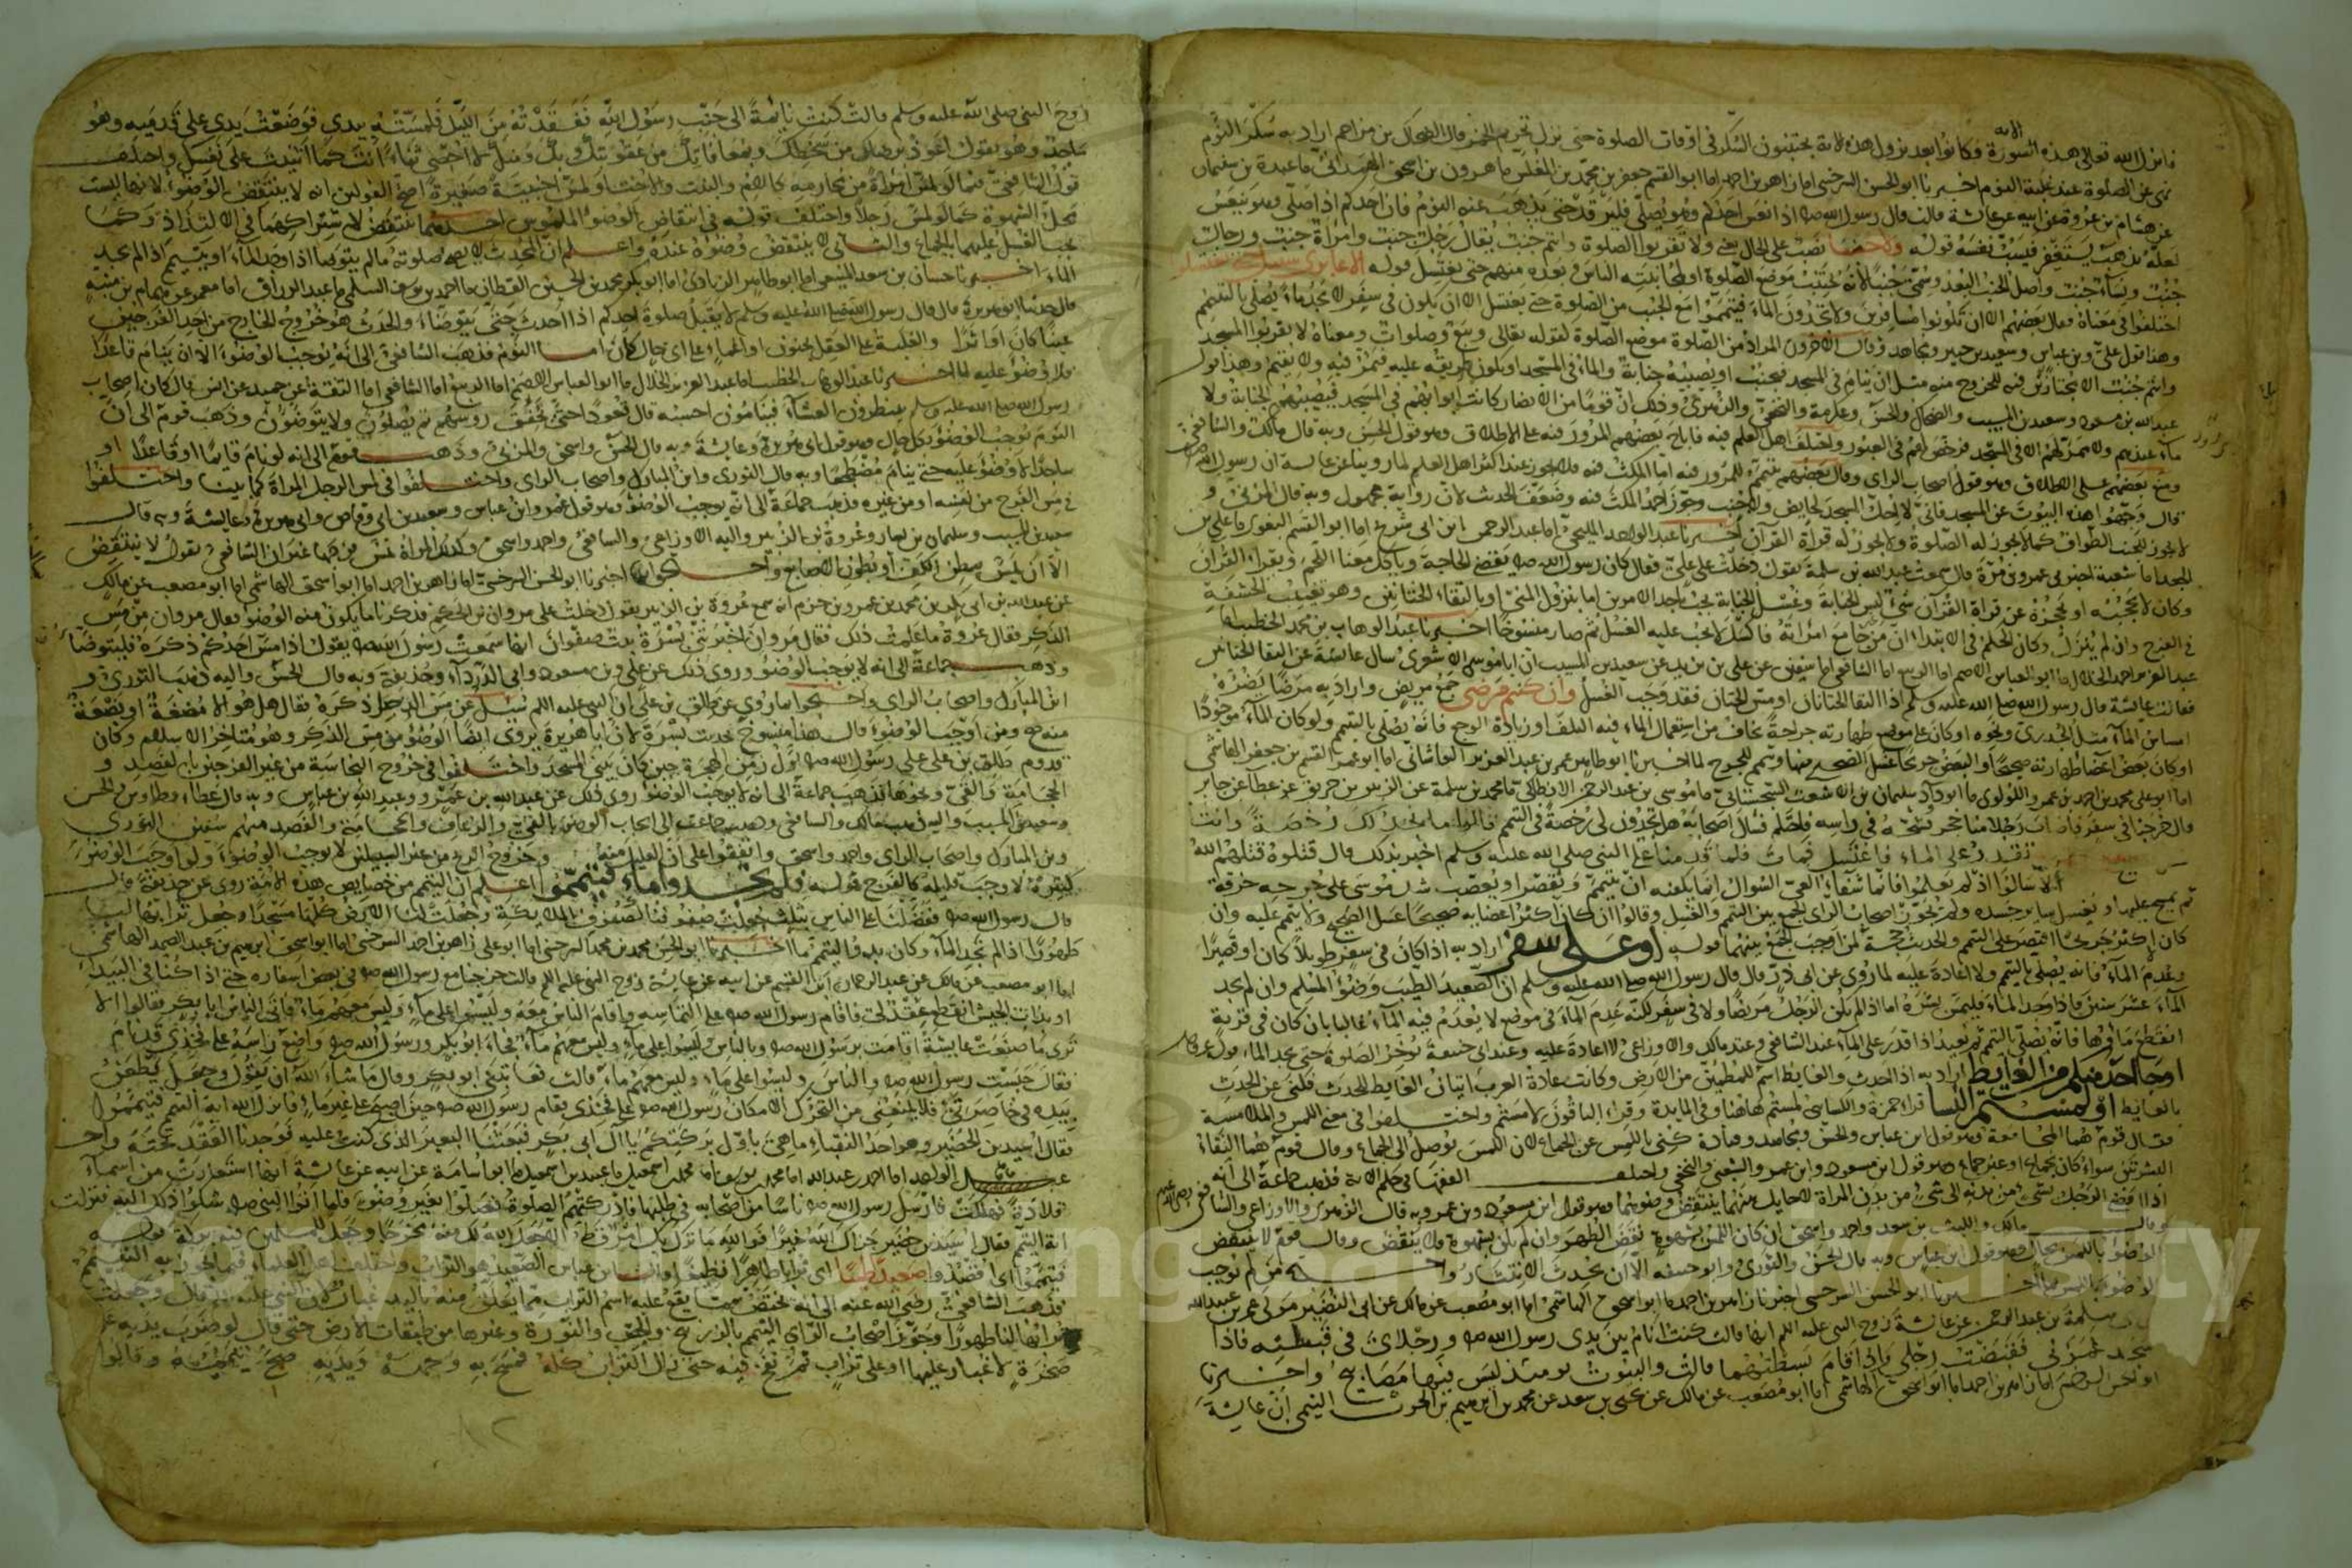 فانزل الله تعالى هذه السورة وكانوا بعد نزول هذه الاية يجتنبون السكر في اوقات الصلوة حتى نزل تحريم الخمر قال الضحاك بن مزاحم اراد به سكر النوم
نهى عن الصلوة عند غلبة النوم اخبرنا ابو الحسن السرخسي انا زاهر بن احمد انا ابو القسم جعفر بن محمد بن المغلس ما هرون بن اسحق الهمداني ما عبدة بن سليمان
عن هشام بن عروة عن ابيه عن عائشة قالت قال رسول الله صلم اذا نعس احدكم وهو يصلي فليرقد حتى يذهب عنه النوم فان احدكم اذا صلى وهو ينعس
لعله يذهب يستغفر فيسب نفسه قوله ولا جنبا نصب على الحال يعني ولا تقربوا الصلوة وانتم جنب يقال رجل جنب وامراة جنب ورجال
جنب ونساء جنب واصل الجنب البعد وسمي جنبا لانه يجتنب موضع الصلوة او لمجانبته الناس وبعده منهم حتى يغتسل قوله الا عابري سبيل حتى تغتسلوا
اختلفوا في معناه وقال بعضهم الا ان تكونوا مسافرين ولا تجدون الماء فتيمموا منع الجنب من الصلوة حتى يغتسل الا ان يكون في سفر لا يجد ماء يصلي بالتيمم
وهذا قول علي وبن عباس وسعيد بن جبير ومجاهد وقال الاخرون المراد من الصلوة موضع الصلوة لقوله تعالى وبيع وصلوات ومعناه لا تقربوا المسجد
وانتم جنب الا مجتازين فيه للخروج منه مثل ان ينام في المسجد فيجنب او يصيبه جنابة والماء في المسجد او يكون طريقه عليه فيمر فيه ولا يقيم وهذا قول
عبد الله بن مسعود وسعيد بن المسيب والضحاك والحسن وعكرمة والنخعي والزهري وذلك ان قوما من الانصار كانت ابوابهم في المسجد فيصيبهم الجنابة ولا
ماء عندهم ولا ممر لهم الا في المسجد فرخص لهم في العبور واختلف اهل العلم فيه فاباح بعضهم المرور فيه على الاطلاق وهو قول الحسن وبه قال مالك والشافعي
ومنع بعضهم على الاطلاق وهو قول اصحاب الراي وقال بعضهم يتيمم للمرور فيه اما المكث فيه فلا يجوز عند اكثر اهل العلم لما روينا عن عائشة ان رسول الله
قال وجهوا هذه البيوت عن المسجد فاني لا احل المسجد لحايض ولا جنب وجوز احمد المكث فيه وضعف الحديث لان رواية مجهول وبه قال المزني و
لا يجوز للجنب الطواف كما لا يجوز له الصلوة ولا يجوز له قراة القرآن اخبرنا عبد الواحد المليحي انا عبد الرحمن ابن ابي شريح انا ابو القسم البغوي ما علي بن
الجعد انا شعبة اخبرني عمرو بن مرة قال سمعت عبد الله بن سلمة يقول دخلت على علي فقال كان رسول الله صلم يقضي الحاجة وياكل معنا اللحم ويقرا القرآن
وكان لا يحجبه او يحجزه عن قراة القرآن شيء ليس الجنابة وغسل الجنابة يجب باحد الامرين اما بنزول المني او بالتقاء الختانين وهو تغييب الحشفة
في الفرج وان لم ينزل وكان الحكم في الابتداء ان من جامع امراته فاكسل لا يجب عليه الغسل ثم صار منسوخا اخبرنا عبد الوهاب بن محمد الخطيب انا
عبد العزيز احمد الخلال انا ابو العباس الاصم انا الربيع انا الشافعي انا سفين عن علي بن زيد عن سعيد بن المسيب ان ابا موسى الاشعري سال عائشة عن التقا الختانين
فقالت عائشة قال رسول الله صلى الله عليه وسلم اذا التقا الختانان او مس الختان فقد وجب الغسل وان كنتم مرضى جمع مريض واراد به مرضا يضره
امساس الماء مثل الجدري ونحوه او كان على موضع طهارته جراحة يخاف من استعمال الماء فيه التلف او زيادة الوجع فانه يصلي بالتيمم ولو كان الماء موجودا
او كان بعض اعضا طهارته صحيحا والبعض جريحا غسل الصحيح منها وتيمم للجروح لما اخبرنا ابو طاهر عمر بن عبد العزيز القاشاني انا ابو عمر القسم بن جعفر الهاشمي
انا ابو علي محمد بن احمد بن عمرو اللولوي ما ابو داود سليمان بن الاشعث السجستاني ما موسى بن عبد الرحمن الانطاكي ما محمد بن سلمة عن الزبير بن خريق عن عطا عن جابر
قال خرجنا في سفر فاصاب رجلا منا حجر فشجه في راسه فاحتلم فسال اصحابه هل تجدون لي رخصة في التيمم قالوا ما نجد لك رخصة وانت
تقدر على الماء فاغتسل فمات فلما قدمنا على النبي صلى الله عليه وسلم اخبر بذلك قال قتلوه قتلهم الله
الا سالوا اذ لم يعلموا فانما شفاء العي السوال انما يكفيه ان يتيمم ويقصر او يعصب شك موسى على جرحه خرقة
ثم يمسح عليها ويغسل سائر جسده ولم يجوز اصحاب الراي الجمع بين التيمم والغسل وقالوا ان كان اكثر اعضايه صحيحا غسل الصحيح ولا يتيمم عليه وان
كان اكثر جريحا اقتصر على التيمم والحديث حجة لمن اوجب الجمع بينهما قوله او على سفر اراد به اذا كان في سفر طويلا كان او قصيرا
وعدم الماء فانه يصلي بالتيمم ولا اعادة عليه لما روي عن ابي ذر قال قال رسول الله صلى الله عليه وسلم ان الصعيد الطيب وضوء المسلم وان لم يجد
الماء عشر سنين فاذا وجد الماء فليمس بشرة اما اذا لم يكن الرجل مريضا ولا في سفر لكنه عدم الماء في موضع لا يعدم فيه الماء غالبا بان كان في قرية
انقطع ماؤها فانه يصلي بالتيمم ثم يعيد اذا قدر على الماء عند الشافعي وعند مالك والاوزاعي لا اعادة عليه وعند ابي حنيفة يؤخر الصلوة حتى يجد الماء قوله عز وجل
او جا احد منكم من الغايط اراد به اذا احدث والغايط اسم للمطمئن من الارض وكانت عادة العرب اتيان الغايط للحدث فكنى عن الحدث
بالغايط او لمستم النسا قرا حمزة والكسائي لمستم هاهنا وفي المايدة وقرا الباقون لامستم واختلفوا في معنى اللمس والملامسة
فقال قوم هما المجامعة وهو قول ابن عباس والحسن ومجاهد وقتادة كنى باللمس عن الجماع لان اللمس توصل الى الجماع وقال قوم هما التقاء
البشرتين سواء كان بجماع او غير جماع وهو قول ابن مسعود وابن عمر والشعبي والنخعي واختلف الفقها في حكم الاية فذهب جماعة الى انه
اذا افضى الرجل بشيء من بدنه الى شيء من بدن المراة لا حايل بينهما ينتقض وضوئهما وهو قول ابن مسعود وبن عمر وبه قال الزهري والاوزاعي والشافعي
وقال مالك والليث بن سعد واحمد واسحق ان كان اللمس بشهوة نقض الطهر وان لم يكن بشهوة فلا ينتقض وقال قوم لا ينتقض
الوضوء باللمس بحال وهو قول ابن عباس وبه قال الحسن والثوري وابو حنيفة الا ان يحدث الانتشار واحتج من لم يوجب
الوضوء باللمس بما اخبرنا ابو الحسن السرخسي اخبرنا زاهر بن احمد انا ابو اسحق الهاشمي انا ابو مصعب عن مالك عن ابي النضر مولى عمر بن عبيد الله
عن ابي سلمة بن عبد الرحمن عن عائشة زوج النبي عليه السلم انها قالت كنت انام بين يدي رسول الله صلم ورجلاي في قبلته فاذا
سجد غمزني فقبضت رجلي واذا قام بسطتهما قالت والبيوت يومئذ ليس فيها مصابيح واخبرنا
ابو الحسن السرخسي انا زاهر بن احمد انا ابو اسحق الهاشمي انا ابو مصعب عن مالك عن يحيى بن سعد عن محمد بن ابرهيم بن الحرث التيمي ان عائشة
زوج النبي صلى الله عليه وسلم قالت كنت نائمة الى جنب رسول الله ففقدته من الليل فلمسته بيدي فوضعت يدي على قدميه وهو
ساجد وهو يقول اعوذ برضاك من سخطك وبمعافاتك من عقوبتك وبك منك لا احصي ثناء انت كما اثنيت على نفسك واختلف
قول الشافعي فيما لو لمس امراة من محارمه كالام والبنت والاخت او لمس اجنبية صغيرة اصح القولين انه لا ينتقض الوضوء لانها ليست
محل الشهوة كما لو لمس رجلا واختلف قوله في انتقاض الوضوء الملموس احدهما انتقض لاشتراكهما في الالتذاذ وكما
يجب الغسل عليهما بالجماع والثاني لا ينتقض وضوئه عنده واعلم ان المحدث لا يصح صلوته ما لم يتوضا اذا وجد الماء او يتيمم اذا لم يجد
الماء اخبرنا حسان بن سعد المنيعي انا ابو طاهر الزيادي انا ابو بكر محمد بن الحسين القطان ما احمد بن يوسف السلمي ما عبد الرزاق انا معمر عن همام بن منبه
قال حدثنا ابو هريرة قال قال رسول الله صلى الله عليه وسلم لا يقبل صلوة احدكم اذا احدث حتى يتوضاء والحدث هو خروج الخارج من احد الفرجين
عينا كان او اثرا والغلبة على العقل بجنون او اغماء على اي حال كان اما النوم فذهب الشافعي الى انه يوجب الوضوء الا ان ينام قاعدا
فلا وضوء عليه لما اخبرنا عبد الوهاب الخطيب انا عبد العزيز الخلال ما ابو العباس الاصم انا الربيع انا الشافعي انا الثقة عن حميد عن انس قال كان اصحاب
رسول الله صلى الله عليه وسلم ينتظرون العشاء فينامون احسبه قال قعودا حتى تخفق رؤسهم ثم يصلون ولا يتوضئون وذهب قوم الى ان
النوم يوجب الوضوء بكل حال وهو قول ابي هريرة وعائشة وبه قال الحسن واسحق والمزني وذهب قوم الى انه لو نام قائما او قاعدا او
ساجدا لا وضوء عليه حتى ينام مضطجعا وبه قال الثوري وابن المبارك واصحاب الراي واختلفوا في لمس الرجل المراة كما بينا واختلفوا
في مس الفرج من نفسه او من غيره فذهب جماعة الى انه يوجب الوضوء وهو قول عمر وابن عباس وسعيد بن ابي وقاص وابي هريرة وعائشة وبه قال
سعيد بن المسيب وسليمان بن يسار وعروة بن الزبير واليه الاوزاعي والشافعي واحمد واسحق وكذلك المراة تمس فرجها غير ان الشافعي يقول لا ينتقض
الا ان يمس ببطن الكف او بطون الاصابع واحتجوا بما اخبرنا ابو الحسن السرخسي انا زاهر بن احمد انا ابو اسحق الهاشمي انا ابو مصعب عن مالك
عن عبد الله بن ابي بكر بن محمد بن عمرو بن حزم انه سمع عروة بن الزبير يقول دخلت على مروان بن الحكم فذكرنا ما يكون منه الوضوء فقال مروان من مس
الذكر فقال عروة ما علمت ذلك فقال مروان اخبرتني بسرة بنت صفوان انها سمعت رسول الله صلم يقول اذا مس احدكم ذكره فليتوضاء
وذهب جماعة الى انه لا يوجب الوضوء وروي ذلك عن علي وبن مسعود وابي الدرداء وحذيفة وبه قال الحسن واليه ذهب الثوري و
ابن المبارك واصحاب الراي واحتجوا بما روي عن طلق بن علي ان النبي عليه السلم سئل عن مس الرجل ذكره فقال هل هو الا مضغة او بضعة
منه ومن اوجب الوضوء قال هذا منسوخ بحديث بسرة لان ابا هريرة يروي ايضا الوضوء من مس الذكر وهو متاخر الاسلام وكان
قدوم طلق بن علي على رسول الله صلم اول زمن الهجرة حين كان يبني المسجد واختلفوا في خروج النجاسة من غير الفرجين بالفصد و
الحجامة والقيء ونحوها فذهب جماعة الى انه لا يوجب الوضوء روي ذلك عن عبد الله بن عمر وعبد الله بن عباس وبه قال عطاء وطاوس والحسن
وسعيد بن المسيب واليه ذهب مالك والشافعي وذهب جماعة الى ايجاب الوضوء بالقيء والرعاف والحجامة والفصد منهم سفين الثوري
وبن المبارك واصحاب الراي واحمد واسحق واتفقوا على ان القليل منه وخروج الريح من غير السبيلين لا يوجب الوضوء ولو اوجب الوضوء
كثيره لاوجب قليله كالفرج قوله فلم تجدوا ماء فتيمموا اعلم ان التيمم من خصايص هذه الامة روي عن حذيفة قال
قال رسول الله صلم فضلنا على الناس بثلث جعلت صفوفنا كصفوف الملايكة وجعلت لنا الارض كلها مسجدا وجعل ترابها لنا
طهورا اذا لم نجد الماء وكان بدو التيمم ما اخبرنا ابو الحسن محمد بن محمد السرخسي انا ابو علي زاهر بن احمد السرخسي انا ابو اسحق ابرهيم بن عبد الصمد الهاشمي
انا ابو مصعب عن مالك عن عبد الرحمن ابن القسم عن ابيه عن عايشة زوج النبي عليه السلم قالت خرجنا مع رسول الله صلم في بعض اسفاره حتى اذا كنا في البيداء
او بذات الجيش انقطع عقد لي فاقام رسول الله صلم على التماسه واقام الناس معه وليسوا على ماء وليس معهم ماء فاتى الناس ابا بكر فقالوا الا
ترى ما صنعت عايشة اقامت برسول الله صلم وبالناس وليسوا على ماء وليس معهم ماء فجاء ابو بكر ورسول الله صلم واضع راسه على فخذي قد نام
فقال حبست رسول الله صلم والناس وليسوا على ماء وليس معهم ماء قالت فعاتبني ابو بكر وقال ما شاء الله ان يقول وجعل يطعن
بيده في خاصرتي فلا يمنعني من التحرك الا مكان رسول الله صلم على فخذي فقام رسول الله صلم حين اصبح على غير ماء فانزل الله اية التيمم فتيمموا
فقال اسيد بن الحضير وهو احد النقباء ما هي باول بركتكم يا ال ابي بكر فبعثنا البعير الذي كنت عليه فوجدنا العقد تحته واخبرنا
عبد الواحد انا احمد عبد الله انا محمد بن يوسف انا محمد بن اسمعيل ما عبيد بن اسمعيل ما ابو اسامة عن ابيه عن عائشة انها استعارت من اسماء
قلادة فهلكت فارسل رسول الله صلم ناسا من اصحابه في طلبها فادركتهم الصلوة فصلوا بغير وضوء فلما اتوا النبي صلم شكوا ذلك اليه فنزلت
اية التيمم فقال اسيد بن حضير جزاك الله خيرا فوالله ما نزل بك امر قط الا جعل الله لك منه مخرجا وجعل للمسلمين فيه بركة قوله
فتيمموا اي اقصدوا صعيدا طيبا اي ترابا طاهرا نظيفا قال ابن عباس الصعيد هو التراب واختلف اهل العلم فيما يجوز به التيمم
فذهب الشافعي رضي الله عنه الى انه يختص بما يقع عليه اسم التراب مما يعلق منه باليد غبار لان النبي عليه السلم قال وجعلت
ترابها لنا طهورا وجوز اصحاب الراي التيمم بالزرنيخ والجص والنورة وغيرها من طبقات الارض حتى قال لو ضرب يديه على
صخرة لا غبار عليها او على تراب ثم نفخ فيه حتى زال التراب كله فمسح به وجهه ويديه صح تيممه وقالوا